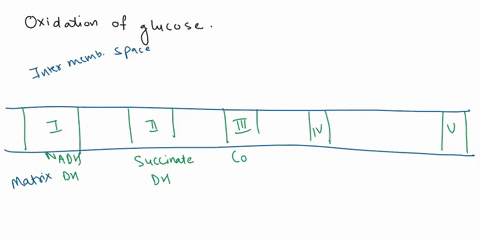 Oxidation of glucose.
Inter memb. space
I II III IV V
NADH Succinate Co
Matrix DH DH